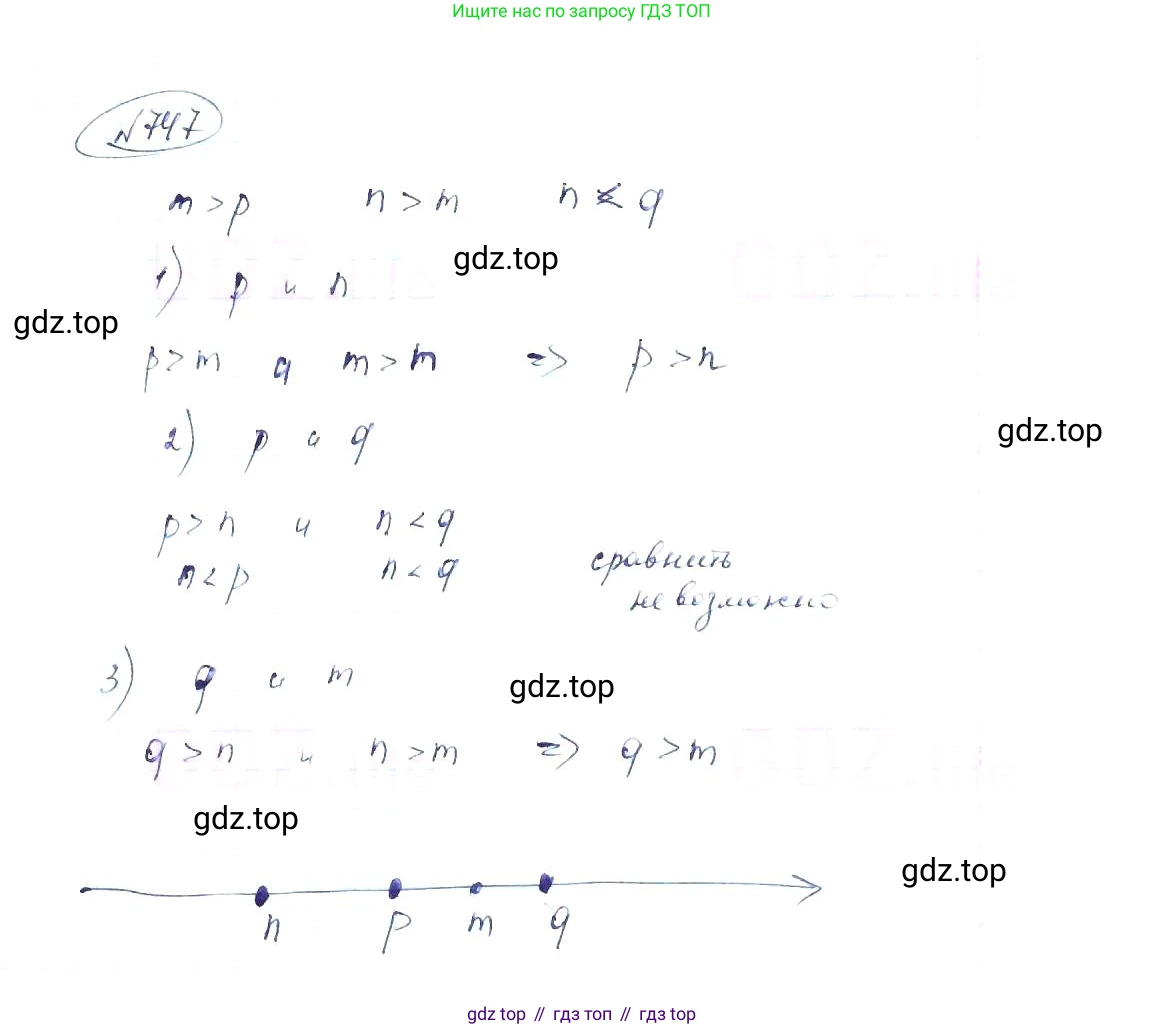 Ищите нас по запросу ГДЗ ТОП
№747
m > p n > m n < q
gdz.top
1) p и n
gdz.top
p > m а m > m => p > n
gdz.top
2) p и q
p > n и n < q
n < p n < q сравнить
невозможно
3) q и m
gdz.top
q > n и n > m => q > m
gdz.top
gdz.top
n p m q
gdz top // гдз топ // гдз top